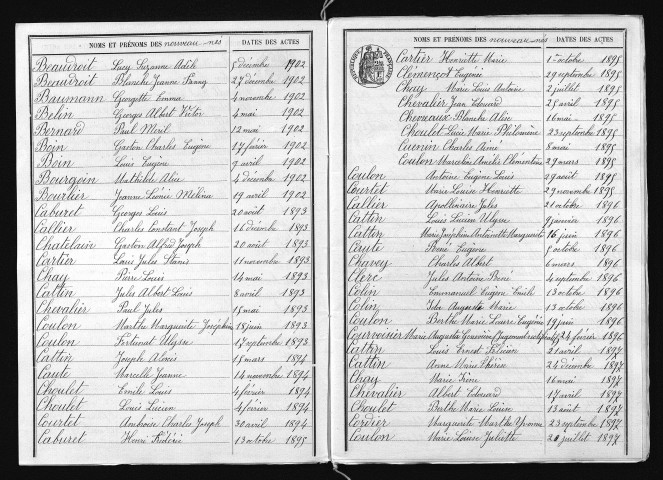 NOMS ET PRÉNOMS DES nouveau-nés DATES DES ACTES
Beaudroit Lucy Suzanne Adèle 5 décembre 1902
Beaudroit Blanche Jeanne Fanny 27 décembre 1902
Baumann Georgette Emma 4 novembre 1902
Belin Georges Albert Victor 4 mai 1902
Bernard Paul 12 mai 1902
Boin Gaston Charles Eugène 17 février 1902
Boin Louis Eugène 9 avril 1902
Bourgoin Mathilde Alice 4 décembre 1902
Bourlier Jeanne Léonie Mélina 19 avril 1902
Caburet Georges Louis 20 août 1893
Callier Charles Constant Joseph 16 décembre 1893
Chatelain Gaston Alfred Joseph 20 août 1893
Cartier Louis Jules Stanis 11 novembre 1893
Chay Pierre Louis 14 mai 1893
Cattin Jules Albert Louis 8 avril 1893
Chevalier Paul Jules 15 mai 1893
Coulon Marthe Marguerite Joséphine 18 juin 1893
Coulon Fertinat Ulysse 17 septembre 1893
Cattin Joseph Aloïs 15 mars 1894
Caute Marcelle Jeanne 14 novembre 1894
Choulet Emile Louis 4 février 1894
Choulet Louis Lucien 4 février 1894
Courtet Ambroise Charles Joseph 30 avril 1894
Caburet Henri Frédéric 13 octobre 1895
NOMS ET PRÉNOMS DES nouveau-nés DATES DES ACTES
Cartier Henriette Marie 1er octobre 1895
Clémençot Eugénie 29 septembre 1895
Chay Marie Louise Antoine 2 juillet 1895
Chevalier Jean Edouard 25 avril 1895
Cheveaux Blanche Alice 16 mai 1895
Choulet Lucie Marie Philomène 23 septembre 1895
Cuenin Charles Aimé 8 mai 1895
Coulon Marcelin Amélie Clémentine 29 mars 1895
Coulon Antoine Eugène Louis 29 août 1895
Courtet Marie Louise Henriette 29 novembre 1895
Callier Apollinaire Jules 21 octobre 1896
Cattin Louis Lucien Ulysse 9 janvier 1896
Cattin Marie Joséphine Antoinette Marguerite 16 juin 1896
Caute René Eugène 1er octobre 1896
Chavey Charles Albert 6 mars 1896
Clerc Jules Antoine René 4 septembre 1896
Colin Emmanuel Eugène Emile 13 octobre 1896
Colin Ida Augusta Marie 13 octobre 1896
Coulon Berthe Marie Louise Eugénie 19 juin 1896
Courvoisier Marie Augusta Geneviève 24 février 1896
Cattin Louis Ernest Félicien 21 avril 1897
Cattin Anne Marie Thérèse 24 décembre 1897
Chay Marie Irène 16 mai 1897
Chevalier Albert Edouard 17 avril 1897
Choulet Berthe Marie Louise 13 août 1897
Cordier Marguerite Marthe Yvonne 23 septembre 1897
Coulon Marie Louise Juliette 21 juillet 1897